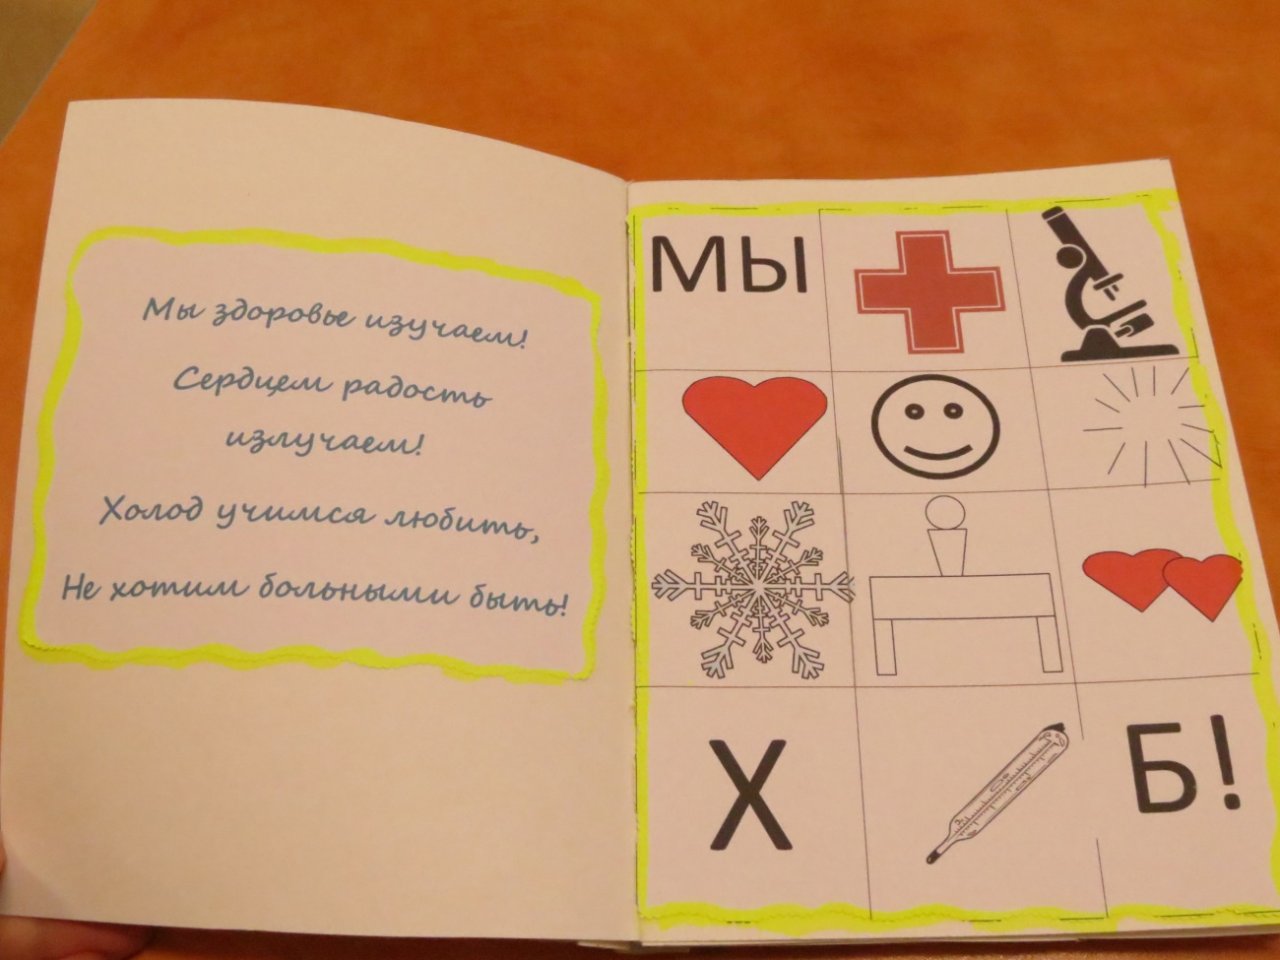 Мы здоровье изучаем!
Сердцем радость
излучаем!
Холод учимся любить,
Не хотим больными быть!
МЫ
Х
Б!